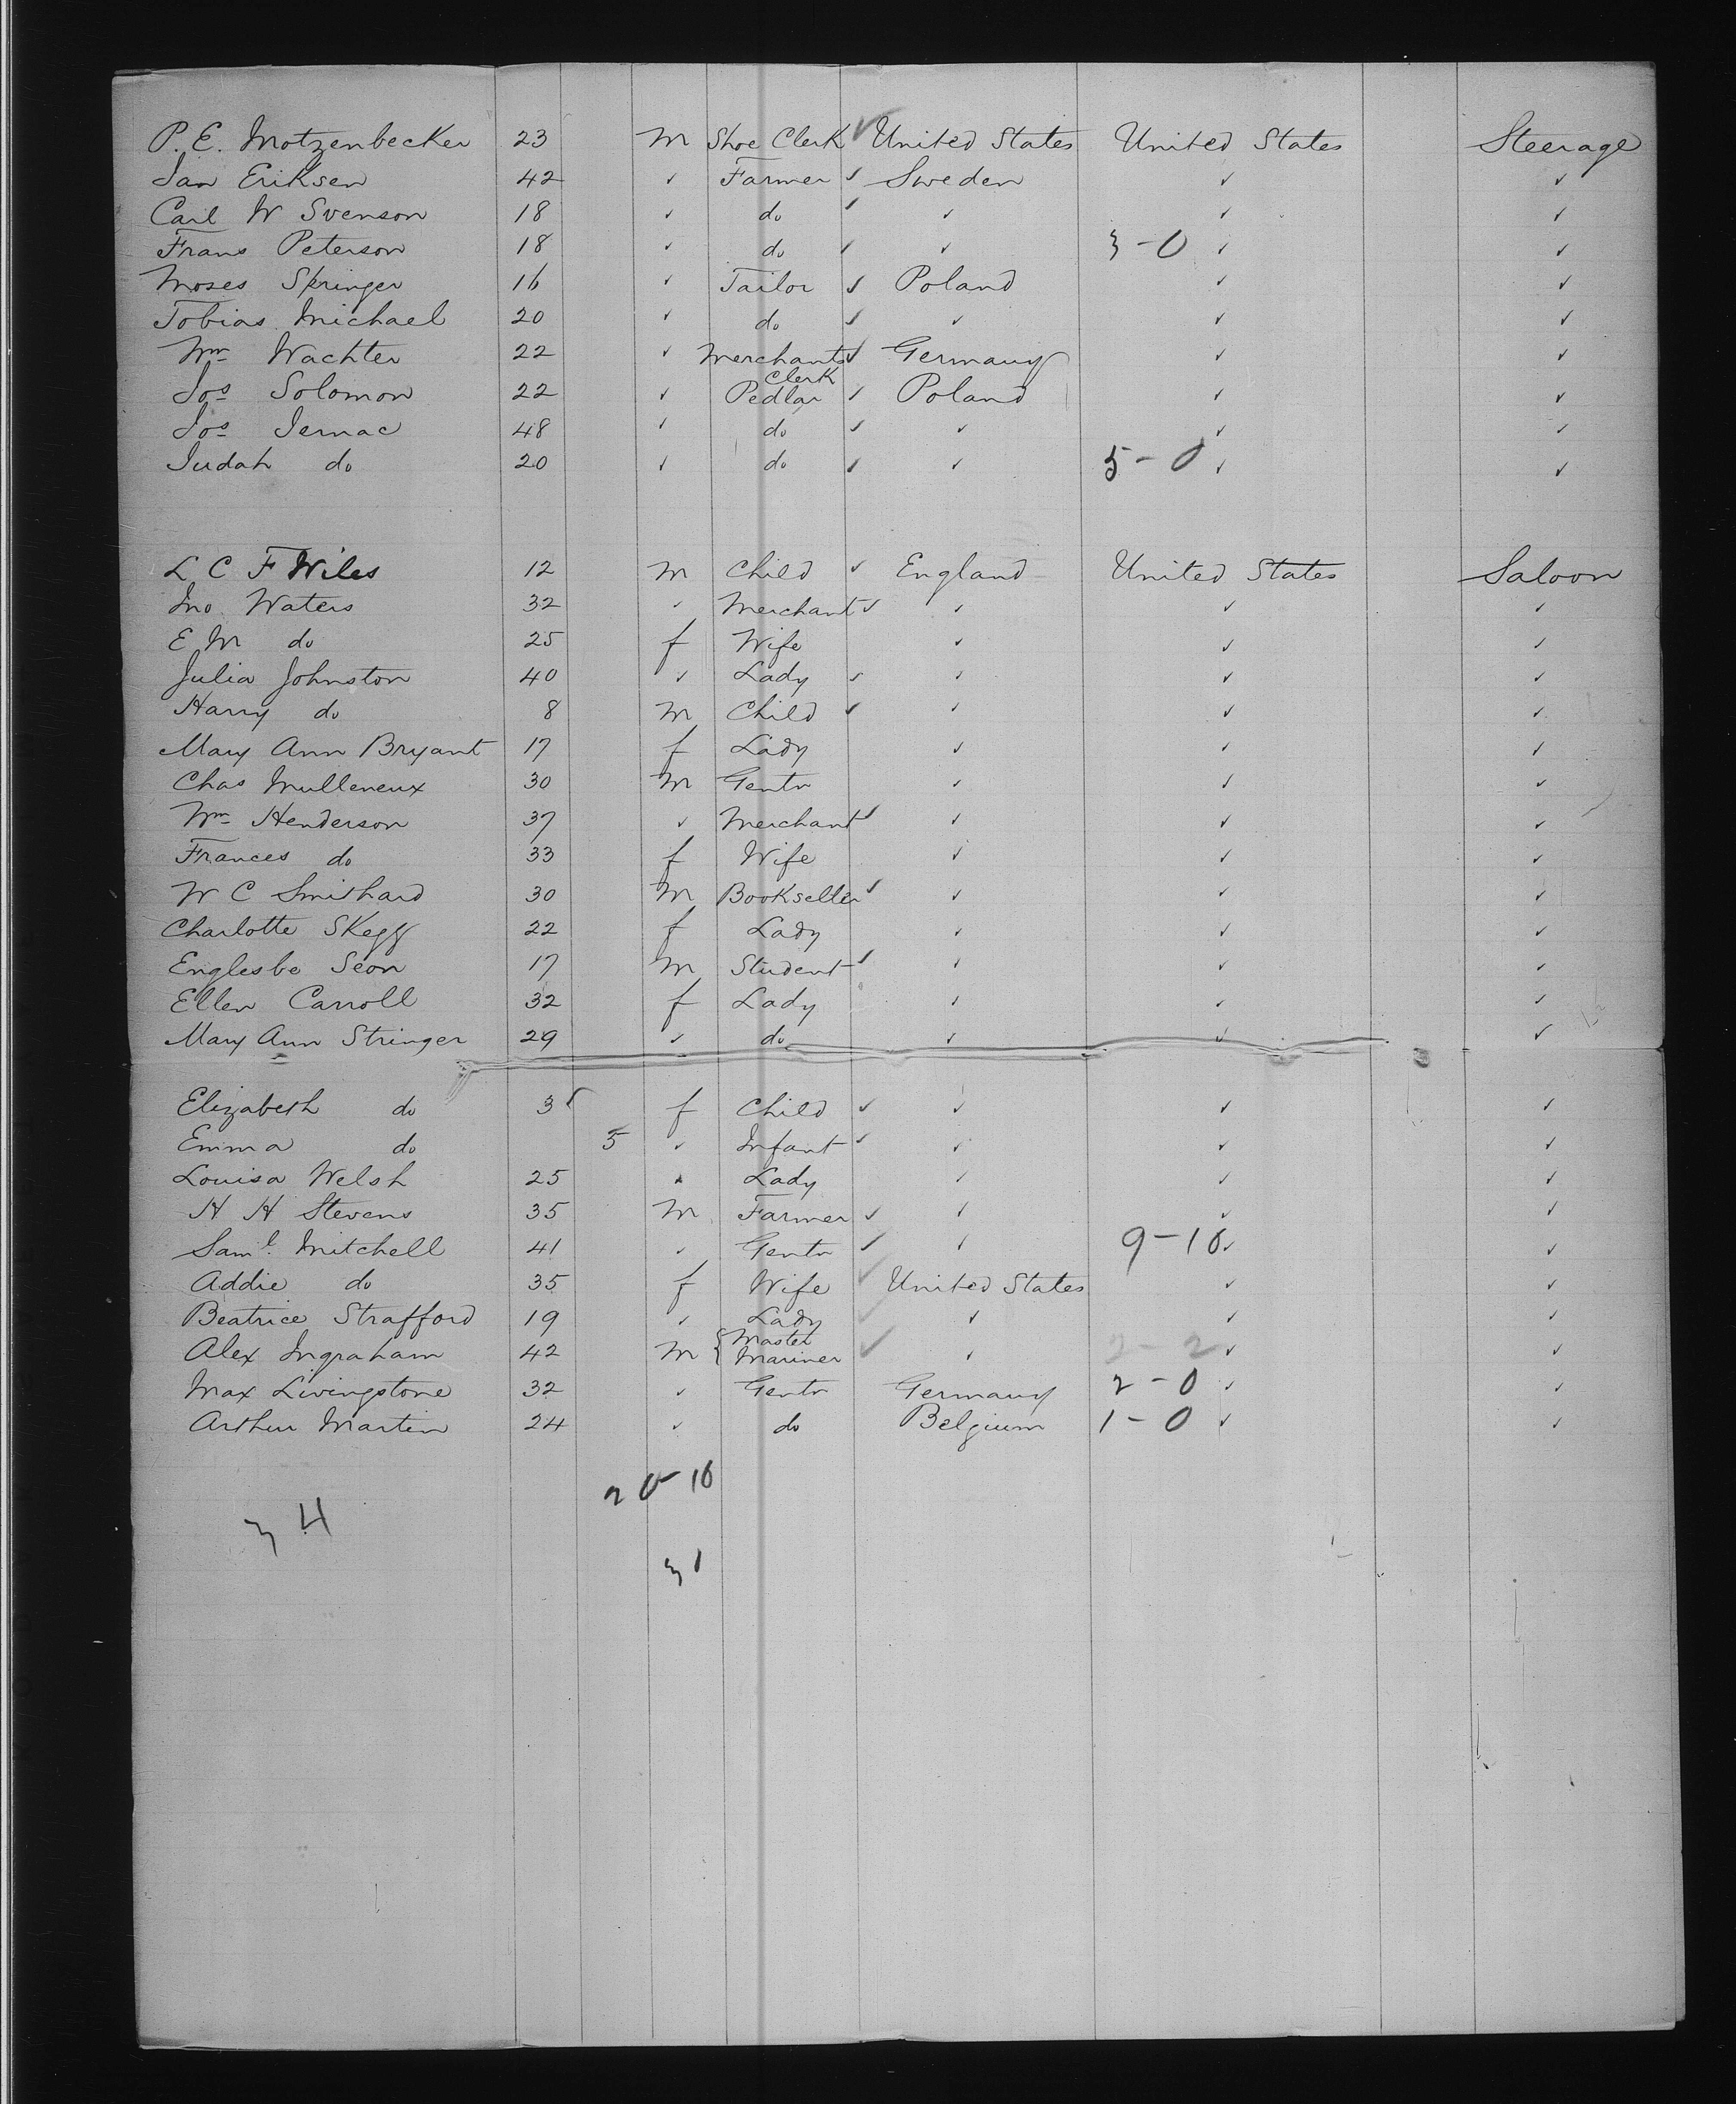 P. E. Motzenbecker 23 M Shoe Clerk ✓ United States United States Steerage
Jan Eriksen 42 ✓ Farmer ✓ Sweden ✓ ✓
Carl W Svenson 18 ✓ do ✓ ✓ ✓ ✓
Frans Peterson 18 ✓ do ✓ ✓ 3-0 ✓ ✓
Moses Springer 16 ✓ Tailor ✓ Poland ✓ ✓
Tobias Michael 20 ✓ do ✓ ✓ ✓ ✓
Wm Wachter 22 ✓ Merchants ✓ Germany ✓ ✓
Clerk
Jos Solomon 22 ✓ Pedlar ✓ Poland ✓ ✓
Jos Jernac 48 ✓ do ✓ ✓ ✓ ✓
Judah do 20 ✓ do ✓ ✓ 5-0 ✓ ✓
L C F Wiles 12 M Child ✓ England United States Saloon
Jno Waters 32 ✓ Merchant ✓ ✓ ✓ ✓
E M do 25 f Wife ✓ ✓ ✓
Julia Johnston 40 ✓ Lady ✓ ✓ ✓ ✓
Harry do 8 M Child ✓ ✓ ✓ ✓
Mary Ann Bryant 17 f Lady ✓ ✓ ✓
Chas Mulleneux 30 M Gentn ✓ ✓ ✓
Wm Henderson 37 ✓ Merchant ✓ ✓ ✓ ✓
Frances do 33 f Wife ✓ ✓ ✓
W C Smithard 30 M Bookseller ✓ ✓ ✓ ✓
Charlotte Skegg 22 f Lady ✓ ✓ ✓
Englesbe Seon 17 M Student ✓ ✓ ✓ ✓
Ellen Carroll 32 f Lady ✓ ✓ ✓
Mary Ann Stringer 29 ✓ do ✓ ✓ ✓
Elizabeth do 3 ✓ f Child ✓ ✓ ✓ ✓
Emma do 5 ✓ Infant ✓ ✓ ✓ ✓
Louisa Welsh 25 ✓ Lady ✓ ✓ ✓
H H Stevens 35 M Farmer ✓ ✓ ✓ ✓
Saml. Mitchell 41 ✓ Gentn ✓ ✓ 9-10 ✓ ✓
Addie do 35 f Wife ✓ United States ✓ ✓
Beatrice Strafford 19 ✓ Lady ✓ ✓ ✓ ✓
Master
Alex Ingraham 42 M { Mariner ✓ ✓ 2-2 ✓ ✓
Max Livingstone 32 ✓ Gentn Germany 2-0 ✓ ✓
Arthur Martin 24 ✓ do Belgium 1-0 ✓ ✓
20-10
34
31